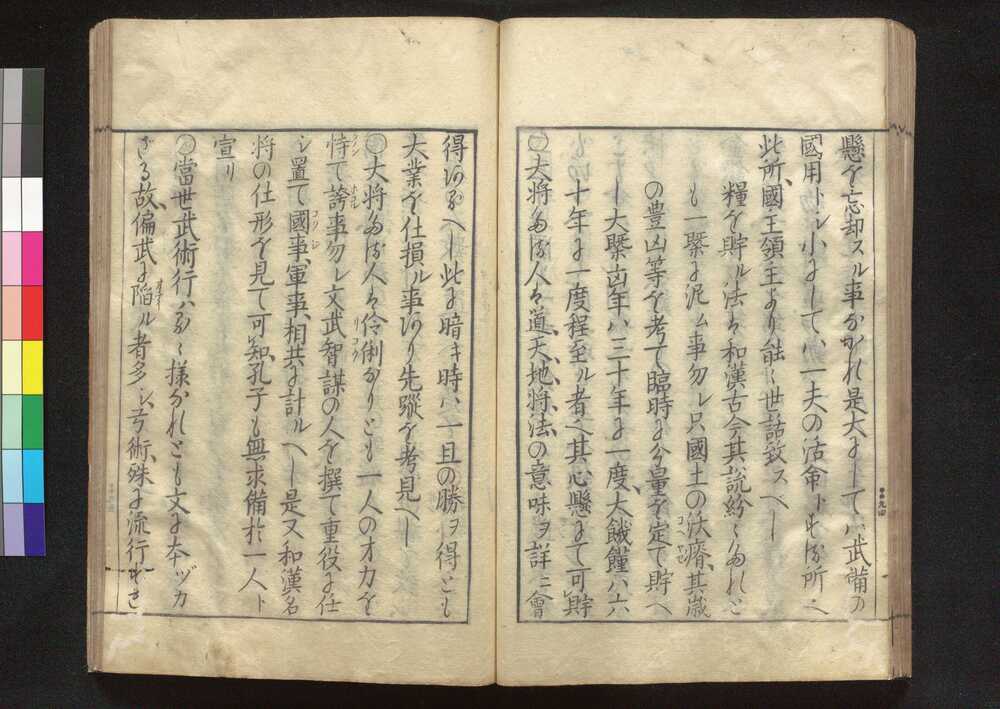 懸を忘却スル事なかれ是大にしてハ武備の
國用トシ小にしてハ一夫の活命トする所也
此所國王領主より能〱世話致スべし
糧を貯ル法ハ和漢古今其説紛〻たれと
も一槩に泥ム事勿レ只國土の沃瘠其歳
の豊凶等を考て臨時に分量を定て貯へ
し大槩凶年ハ三十年に一度大饑饉ハ六
十年に一度程至ル者也其心懸にて可貯
〇大将たる人ハ道天地将法の意味ヲ詳ニ會
得あるへし此に暗キ時ハ一旦の勝ヲ得とも
大業を仕損ル事あり先蹤を考見へし
〇大将たる人ハ伶俐なりとも一人の才力を
恃て誇事勿レ文武智謀の人を撰て重役に仕
シ置て國事軍事相共に計ルへし是又和漢名
将の仕形を見て可知孔子も無求備於一人ト
宣り
〇當世武術行ハるゝ様なれとも文に本ヅカ
ざる故偏武に陥ル者多シ弓術殊に流行すれと